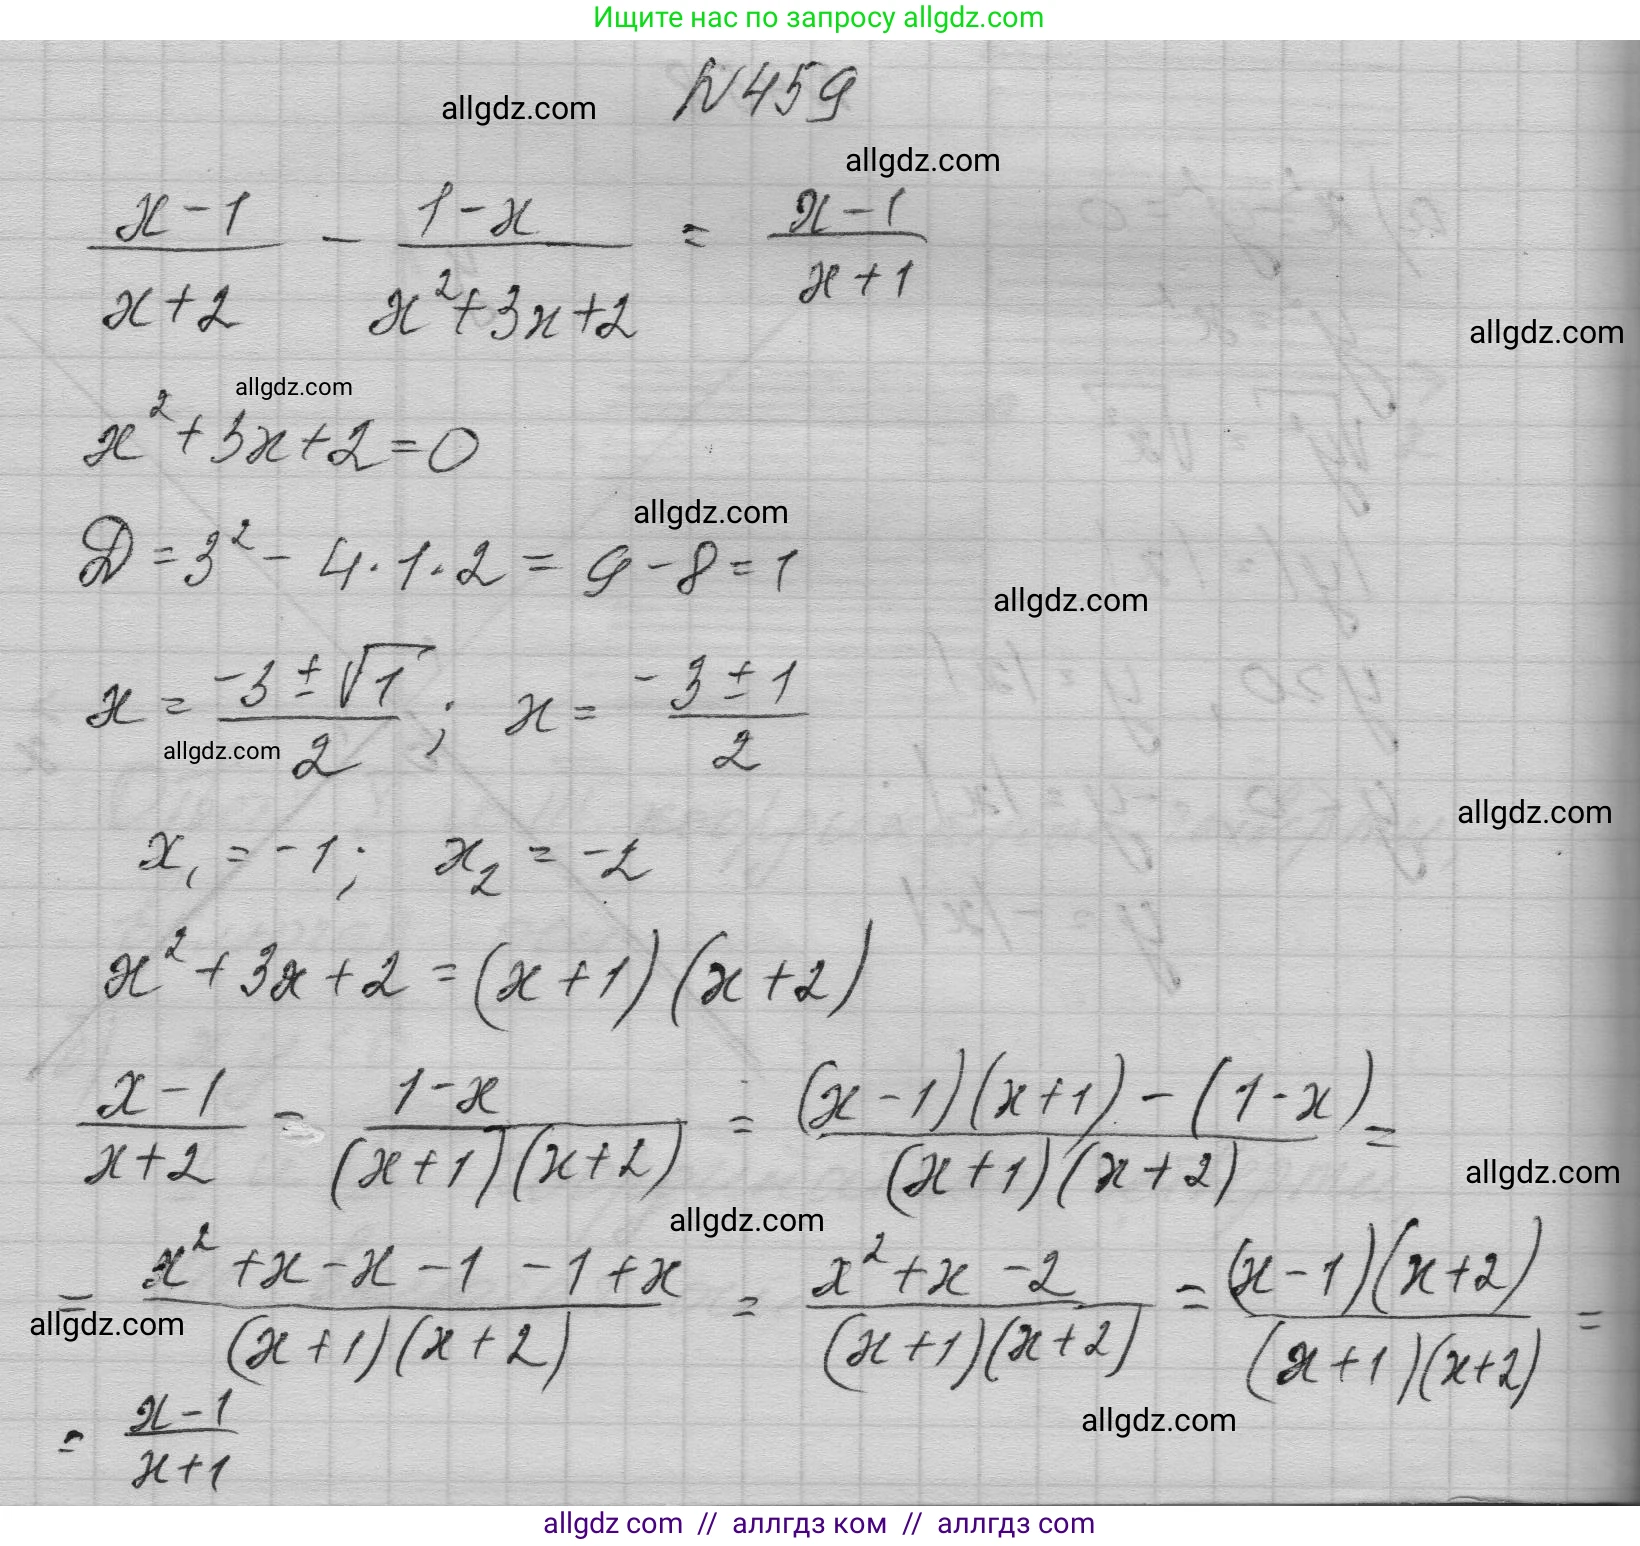 Ищите нас по запросу allgdz.com
allgdz.com N 459
allgdz.com
(x-1)/(x+2) - (1-x)/(x²+3x+2) = (x-1)/(x+1)
allgdz.com
allgdz.com
x²+3x+2=0
allgdz.com
D=3²-4·1·2=9-8=1
allgdz.com
x=(-3±√1)/2; x=(-3±1)/2
allgdz.com
allgdz.com
x₁=-1; x₂=-2
x²+3x+2=(x+1)(x+2)
(x-1)/(x+2) - (1-x)/((x+1)(x+2)) = ((x-1)(x+1)-(1-x))/((x+1)(x+2)) =
allgdz.com
allgdz.com
= (x²+x-x-1-1+x)/((x+1)(x+2)) = (x²+x-2)/((x+1)(x+2)) = ((x-1)(x+2))/((x+1)(x+2)) =
allgdz.com
allgdz.com
= (x-1)/(x+1)
allgdz com // аллгдз ком // аллгдз com